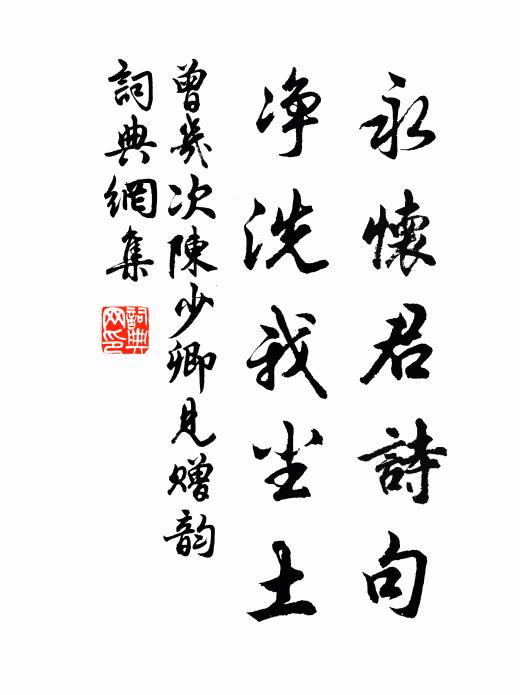 永懷君詩句
净洗我尘土
曾幾次陳少卿見贈韵
詞典網集
詞典网印